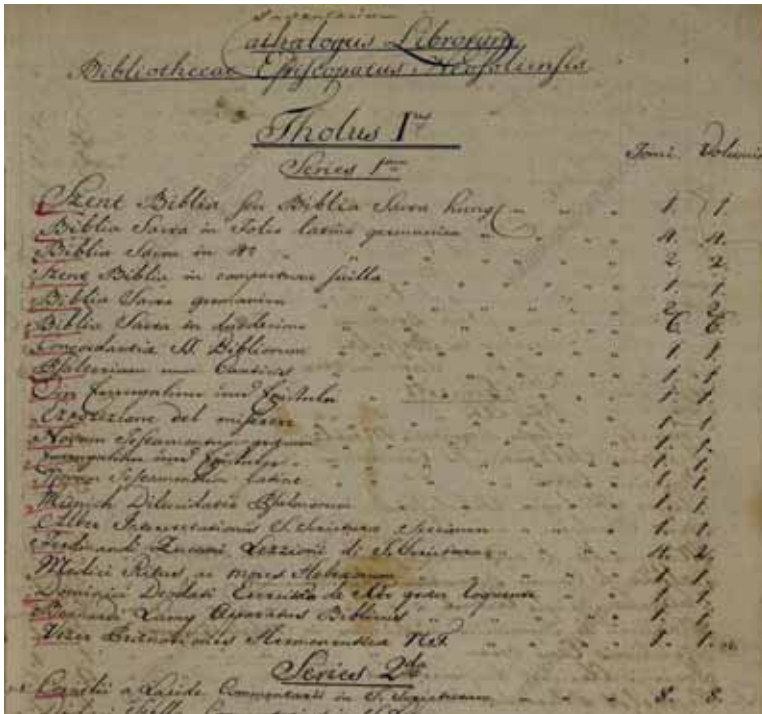 Cathalogus Librorum
Bibliothecae Episcopatus Neosoliensis
Tholus I^us
Series 1^ma
Tomi. Volumina
Szent Biblia seu Biblia Sacra hung. " " " 1. 1.
Biblia Sacra in Folio latino germanica " " " " 4. 4.
Biblia Sacra in 4° " " " " " " " 2 2
Szent Biblia in " " " 1. 1.
Biblia Sacra germanica " " " " " " 2. 2.
Biblia Sacra in " " " " " " 6. 6.
Concordantia SS. Bibliorum " " " " " " 1. 1.
Psalterium cum Canticis " " " " " " 1. 1.
Evangelium und " " " " 1. 1.
Expositione del miserere " " " " 1. 1.
Novum Testamentum " " " " 1. 1.
Evangelien und " " " " 1. 1.
Novum Testamentum latine " " " " 1. 1.
Dilucidatio Psalmorum " " " " 1. 1.
Alber Interpretationis S. Scripturae Specimen " " " 1. 1.
Ferdinandi Zucconi Lezzioni di S. Scrittura " " " 4. 2.
Medici Ritus ac mores Hebraeorum " " " " 1. 1.
Dominici Diodati de graece loquente " " 1. 1.
Bernardi Lamy Apparatus Biblicus " " " " 1. 1.
Hermeneutica " " " 1. 1.
Series 2^da
Cornelii a Lapide Commentarii in S. Scripturam " " " 8. 8.